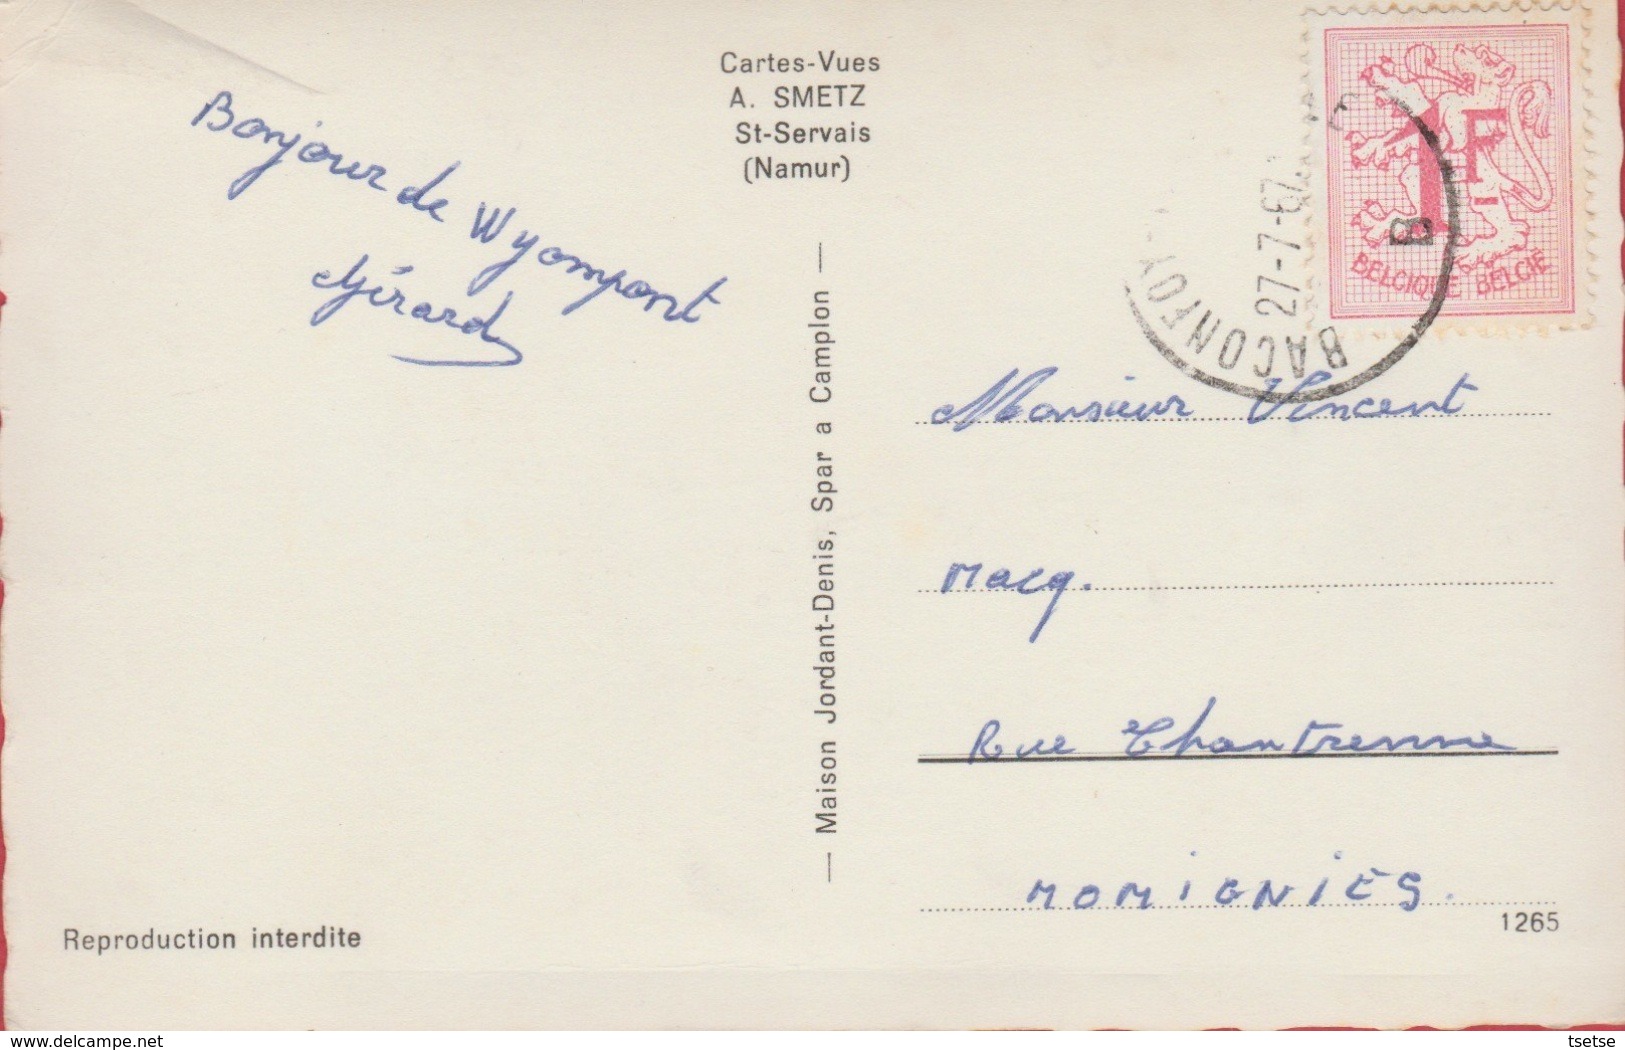 Cartes-Vues
A. SMETZ
St-Servais
(Namur)
Bonjour de Wyompont
Gérard
1F
BELGIQUE BELGIË
BACONFOY
27-7-67
B
Maison Jordant-Denis, Spar a Camplon
Monsieur Vincent
Macq.
Rue Chantrenne
MOMIGNIES.
1265
Reproduction interdite
delcampe.net
tsetse